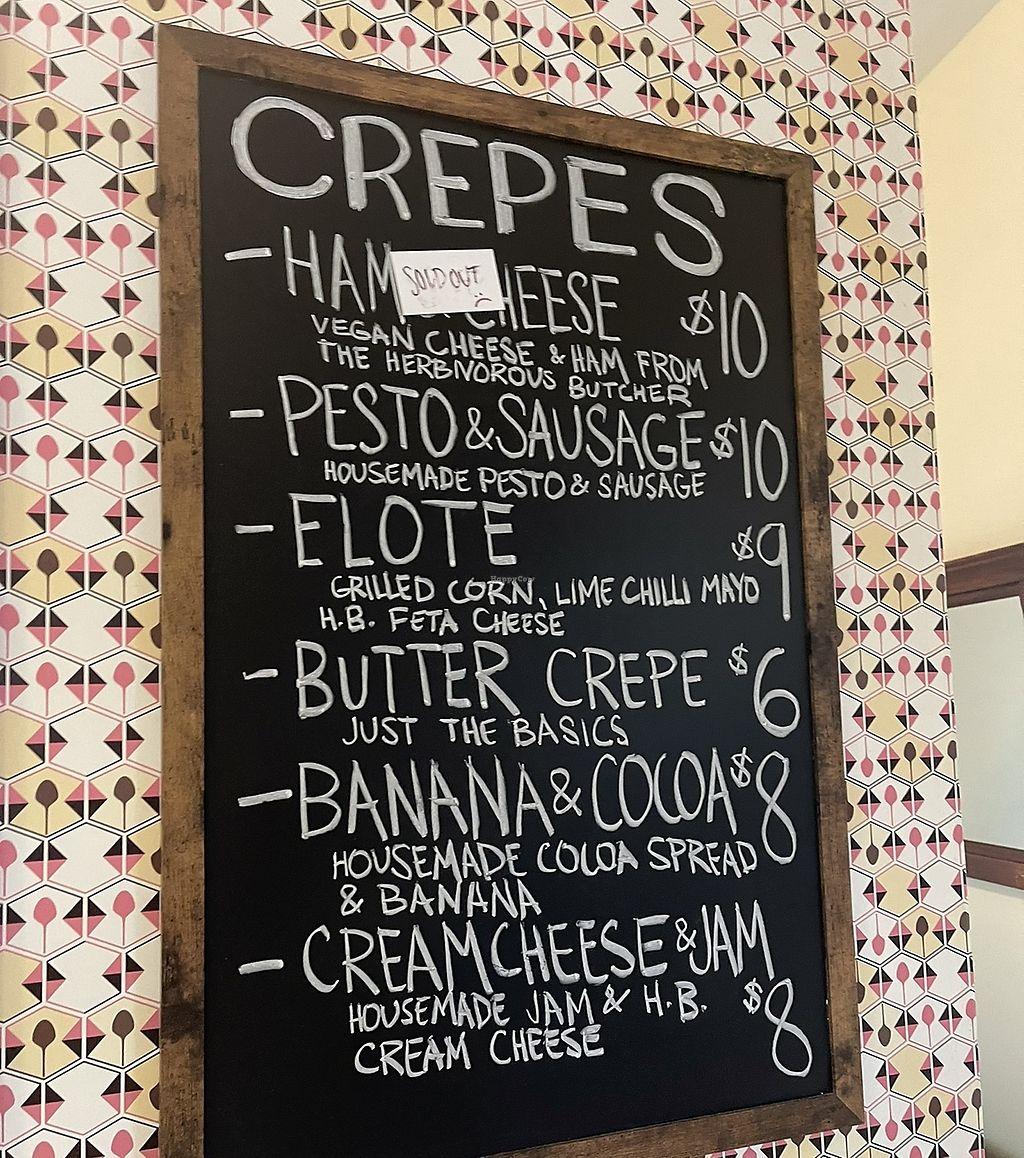 CREPES
- HAM & CHEESE $10
SOLD OUT
VEGAN CHEESE & HAM FROM
THE HERBNOROUS BUTCHER
- PESTO & SAUSAGE $10
HOUSEMADE PESTO & SAUSAGE
- ELOTE $9
GRILLED CORN, LIME CHILLI MAYO
H.B. FETA CHEESE
- BUTTER CREPE $6
JUST THE BASICS
- BANANA & COCOA $8
HOUSEMADE COCOA SPREAD
& BANANA
- CREAM CHEESE & JAM $8
HOUSEMADE JAM & H.B.
CREAM CHEESE
HappyCow